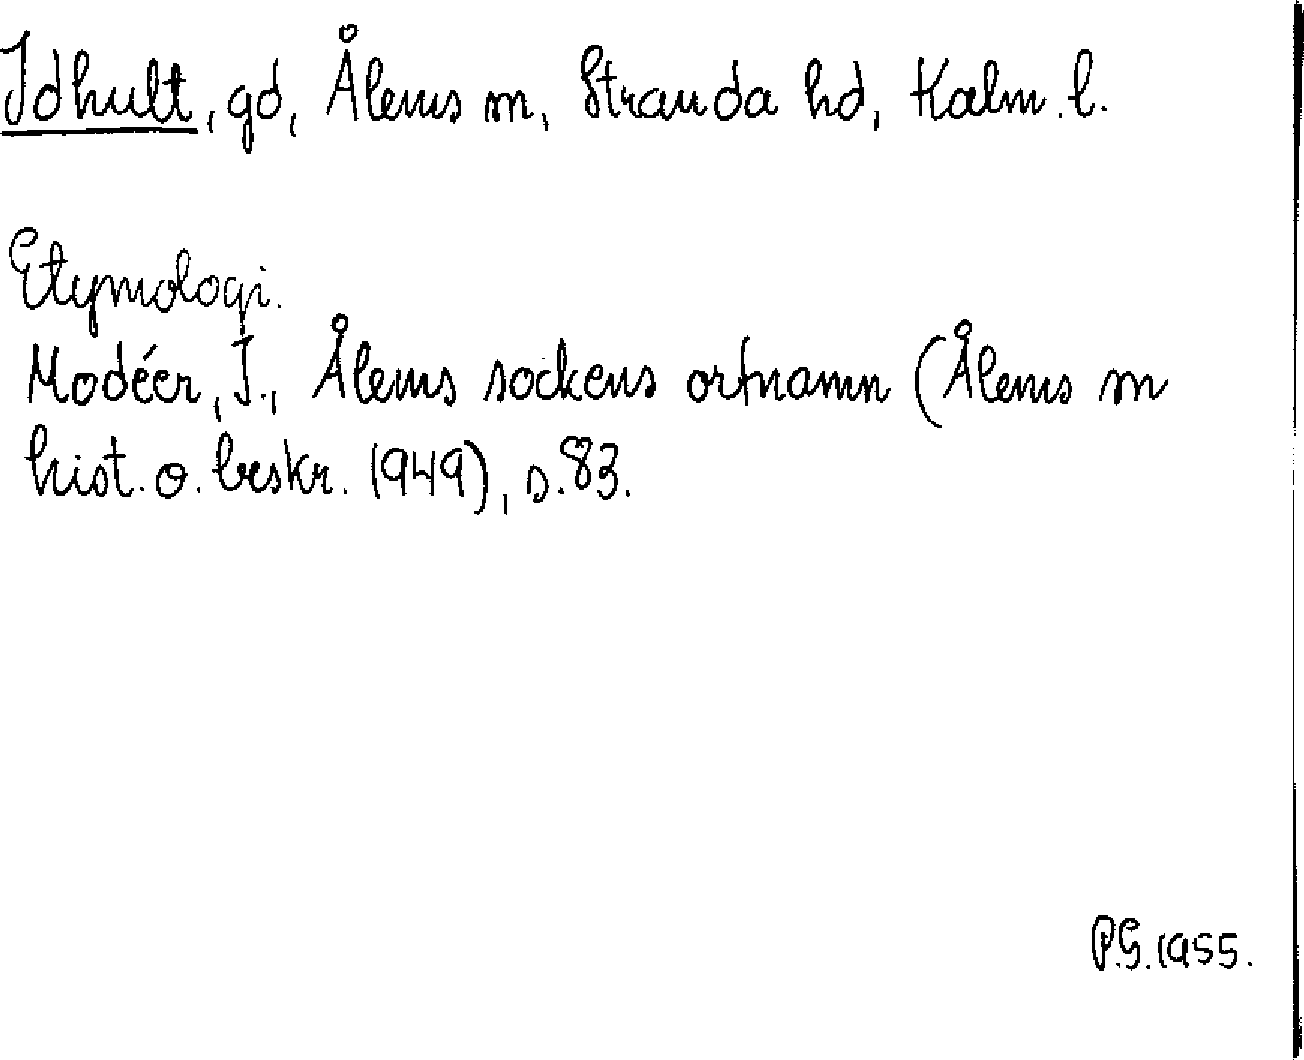 Idhult, gd, Ålems sn, Stranda hd, Kalm. l.
Etymologi.
Modéer, I., Ålems sockens ortnamn (Ålems sn
hist. o. beskr. 1949), s. 83.
P.G. 1955.